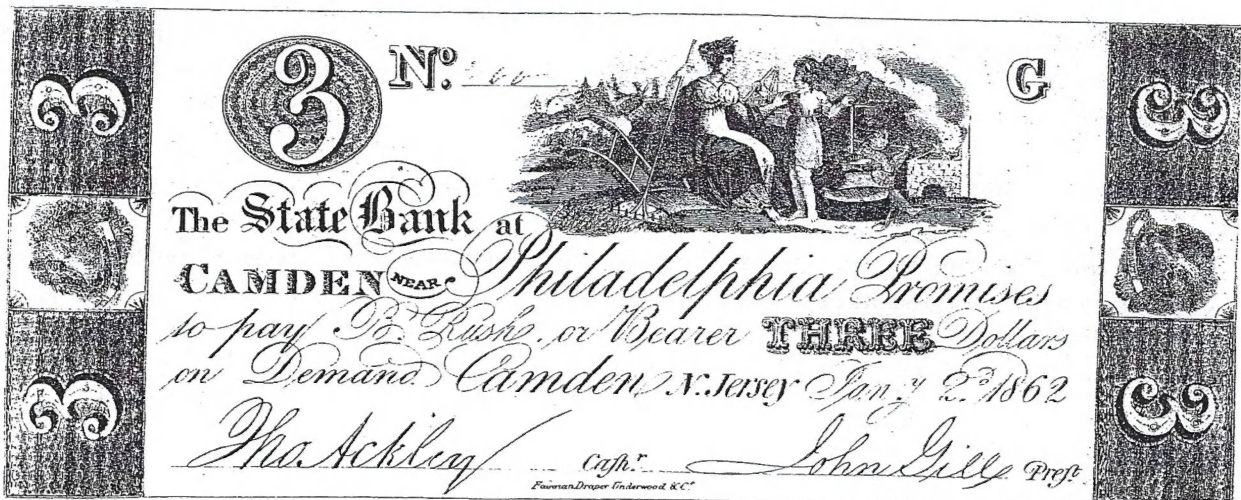 3 Nº. G
3 3
The State Bank at
CAMDEN NEAR Philadelphia Promises
to pay B. Rush, or Bearer THREE Dollars
on Demand Camden N. Jersey Jan.y 2.d 1862
3 3
Tho. Ackley Cash.r John Gill Pres.t
Fairman, Draper Underwood & Co.